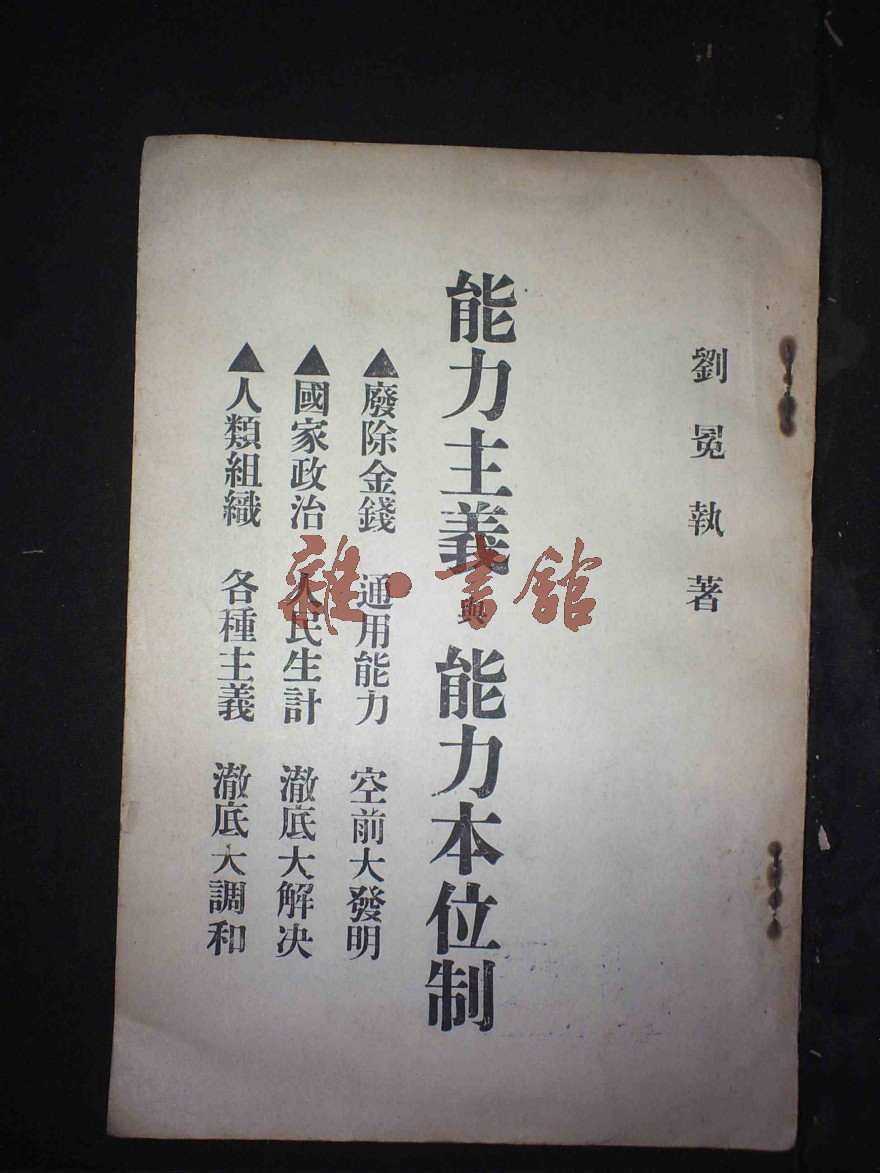 劉冕執著
能力主義與能力本位制
▲廢除金錢 通用能力 空前大發明
▲國家政治 人民生計 澈底大解决
▲人類組織 各種主義 澈底大調和
雜·書館